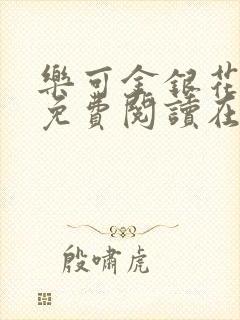 樂可金銀花
免費閱讀在
殷嘯虎